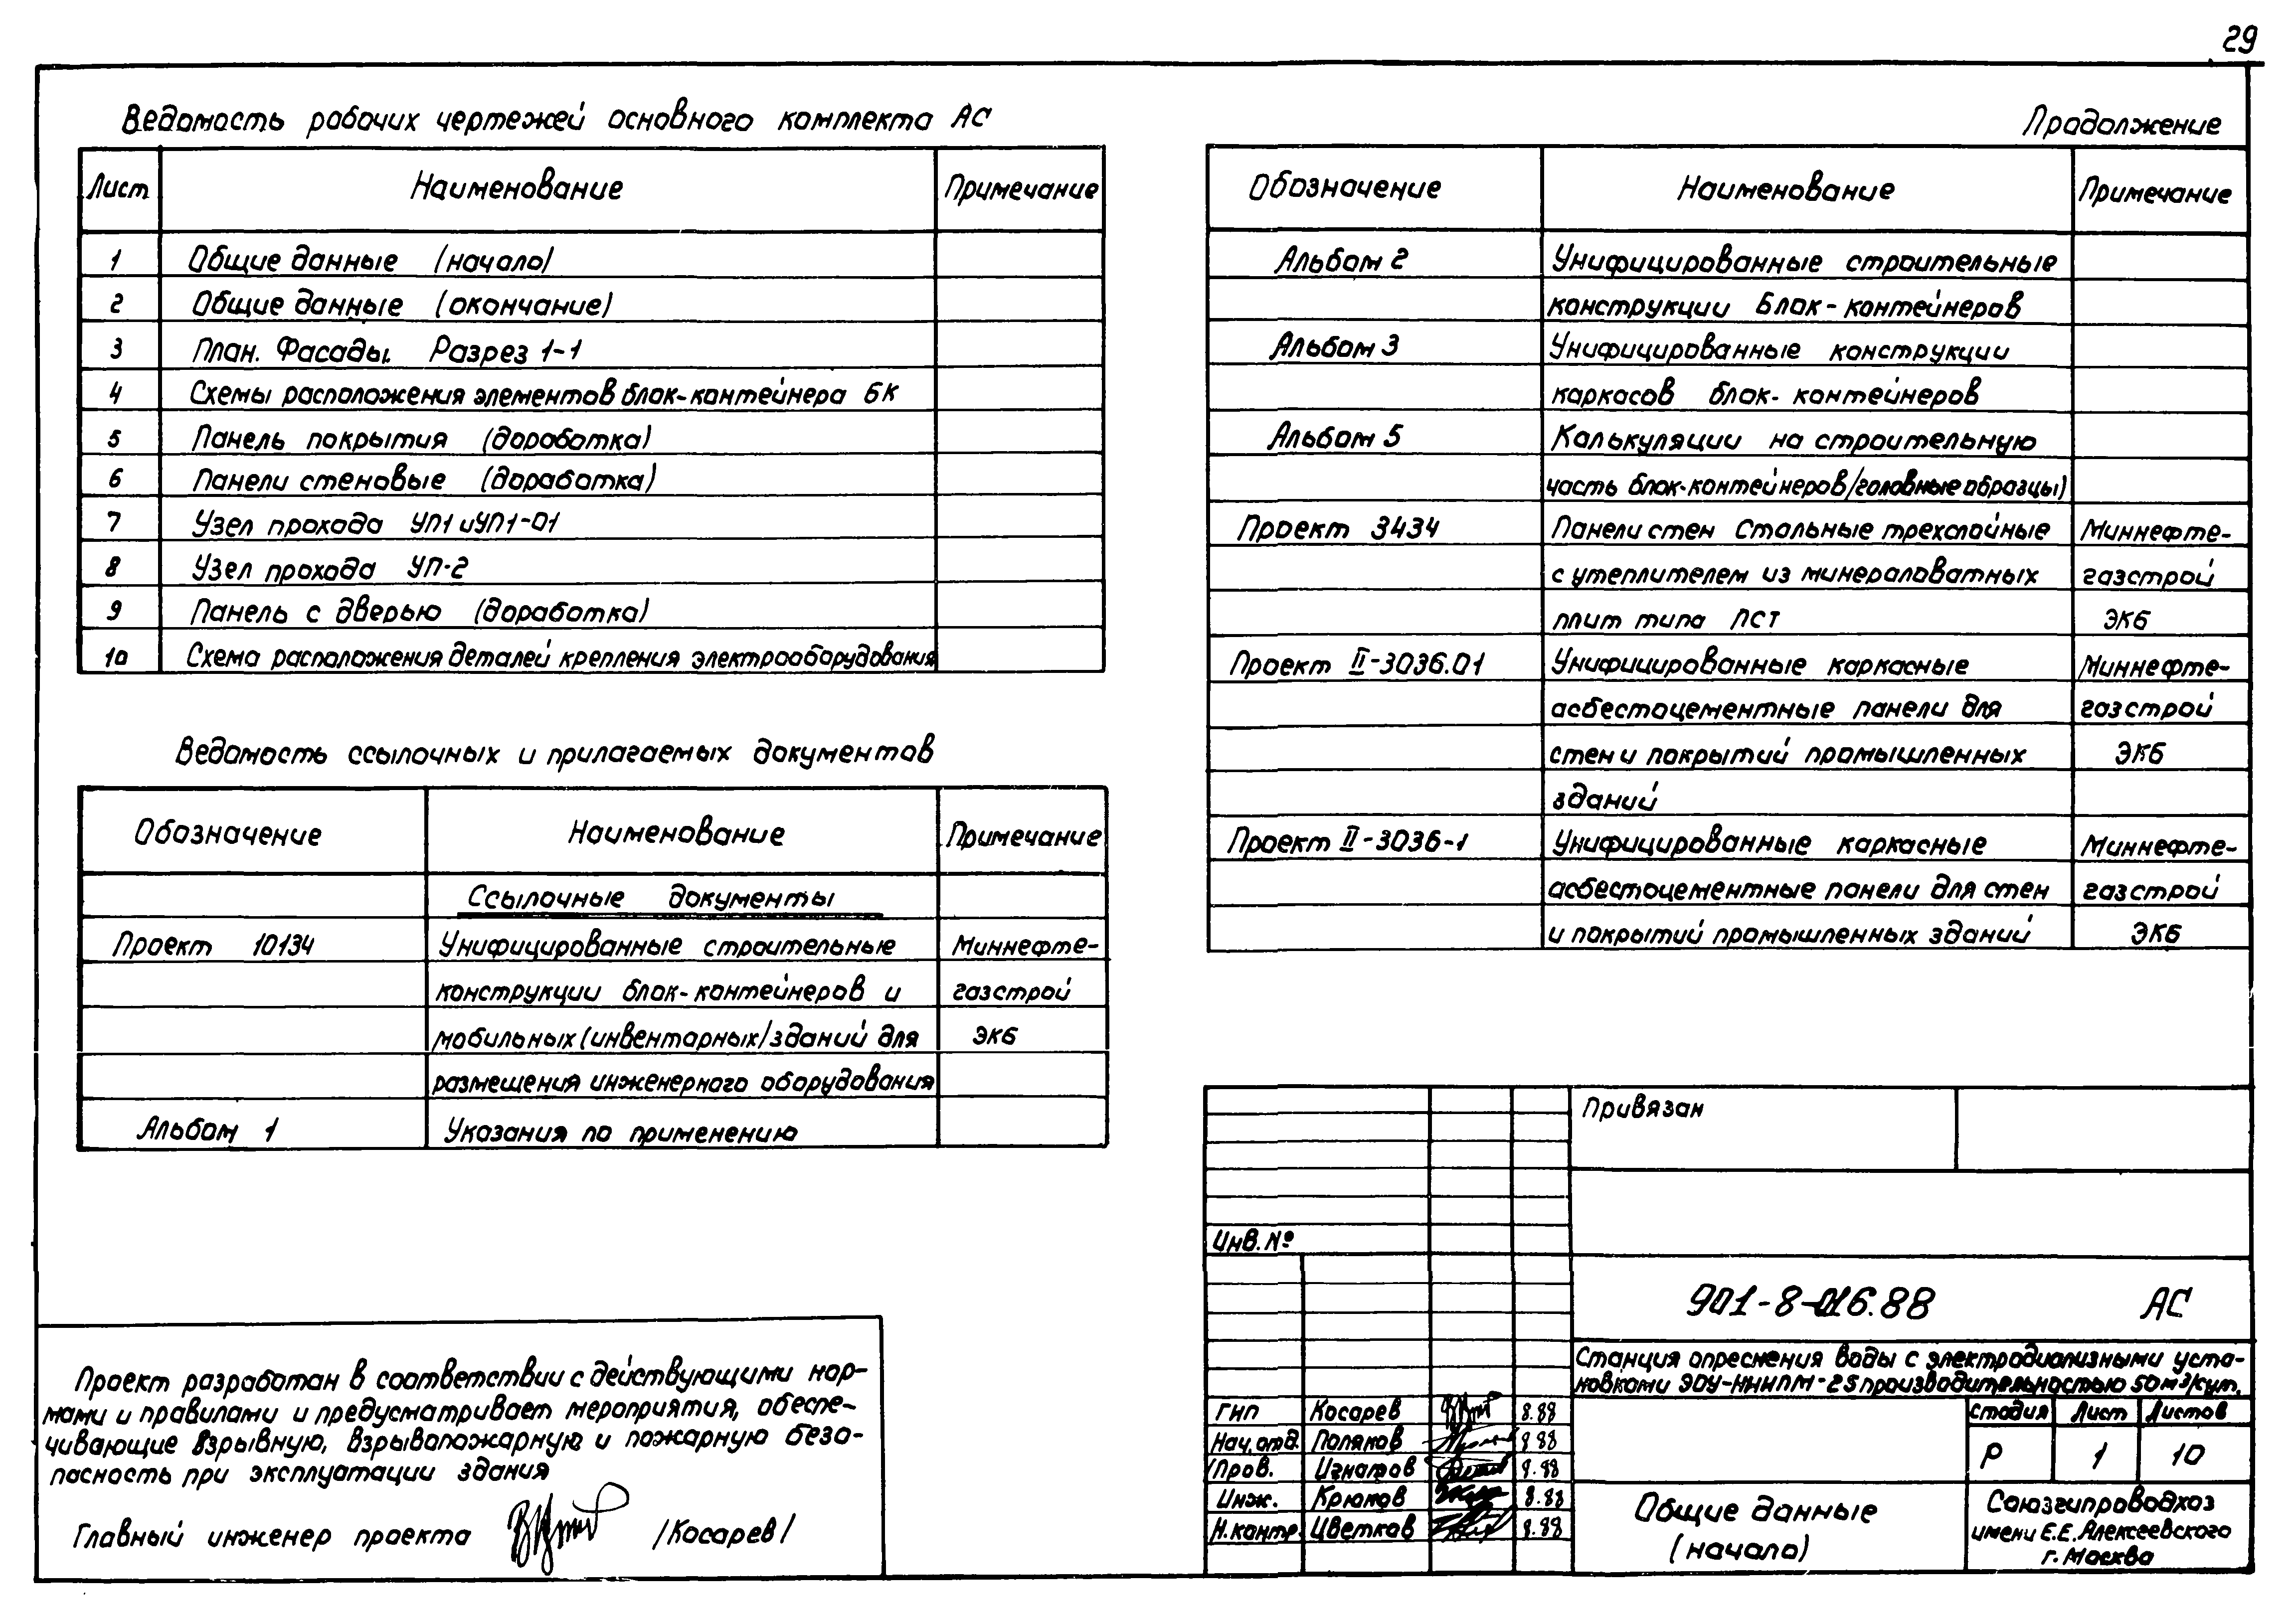 29
Ведомость рабочих чертежей основного комплекта АС
Лист Наименование Примечание
1 Общие данные (начало)
2 Общие данные (окончание)
3 План. Фасады. Разрез 1-1
4 Схемы расположения элементов блок-контейнера БК
5 Панель покрытия (доработка)
6 Панели стеновые (доработка)
7 Узел прохода УП1 и УП1-01
8 Узел прохода УП-2
9 Панель с дверью (доработка)
10 Схема расположения деталей крепления электрооборудования
Ведомость ссылочных и прилагаемых документов
Обозначение Наименование Примечание
Ссылочные документы
Проект 10134 Унифицированные строительные Миннефте-
конструкции блок-контейнеров и газстрой
мобильных (инвентарных) зданий для ЭКБ
размещения инженерного оборудования
Альбом 1 Указания по применению
Проект разработан в соответствии с действующими нор-
мами и правилами и предусматривает мероприятия, обеспе-
чивающие взрывную, взрывопожарную и пожарную безо-
пасность при эксплуатации здания
Главный инженер проекта /Косарев/
Продолжение
Обозначение Наименование Примечание
Альбом 2 Унифицированные строительные
конструкции Блок-контейнеров
Альбом 3 Унифицированные конструкции
каркасов блок-контейнеров
Альбом 5 Калькуляции на строительную
часть блок-контейнеров (головные образцы)
Проект 3434 Панели стен стальные трехслойные Миннефте-
с утеплителем из минераловатных газстрой
плит типа ПСТ ЭКБ
Проект II-3036.01 Унифицированные каркасные Миннефте-
асбестоцементные панели для газстрой
стен и покрытий промышленных ЭКБ
зданий
Проект II-3036-1 Унифицированные каркасные Миннефте-
асбестоцементные панели для стен газстрой
и покрытий промышленных зданий ЭКБ
Привязан
Инв. №
901-8-016.88 АС
Станция опреснения воды с электродиализными уста-
новками ЭОУ-НИИПМ-25 производительностью 50 м³/сут.
ГИП Косарев 8.88
Нач. отд. Поляков 8.88
Пров. Игнатов 8.88
Инж. Крюков 8.88
Н. контр. Цветков 8.88
Стадия Лист Листов
Р 1 10
Общие данные
(начало)
Союзгипроводхоз
имени Е.Е. Алексеевского
г. Москва